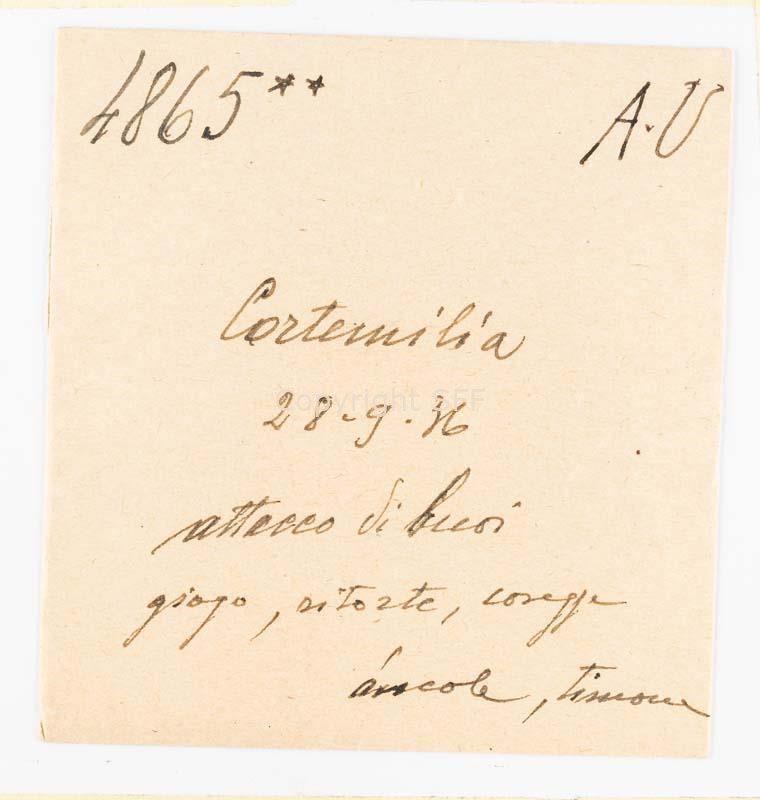 4865** A.V
Cortemilia
Copyright SFF
28-9-36
attacco di buoi
giogo, ritorte, coregge
áncole, timone